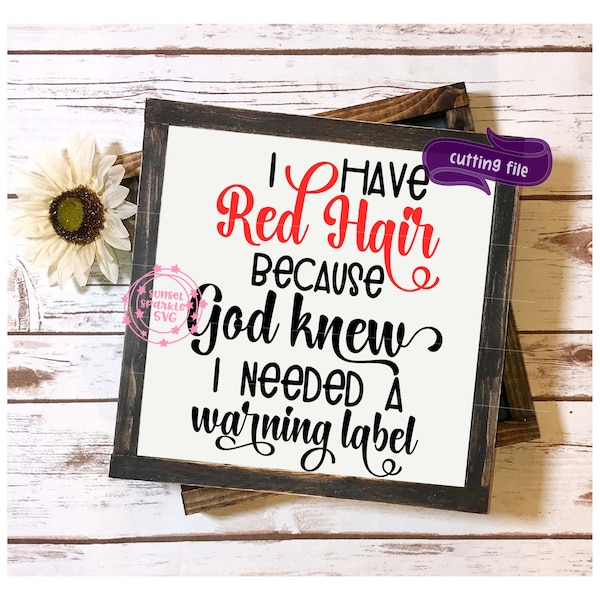 I HAVE
Red Hair
BECAUSE
God knew
I NEEDED A
warning label
cutting file
SUNSET
SPARKLE
SVG